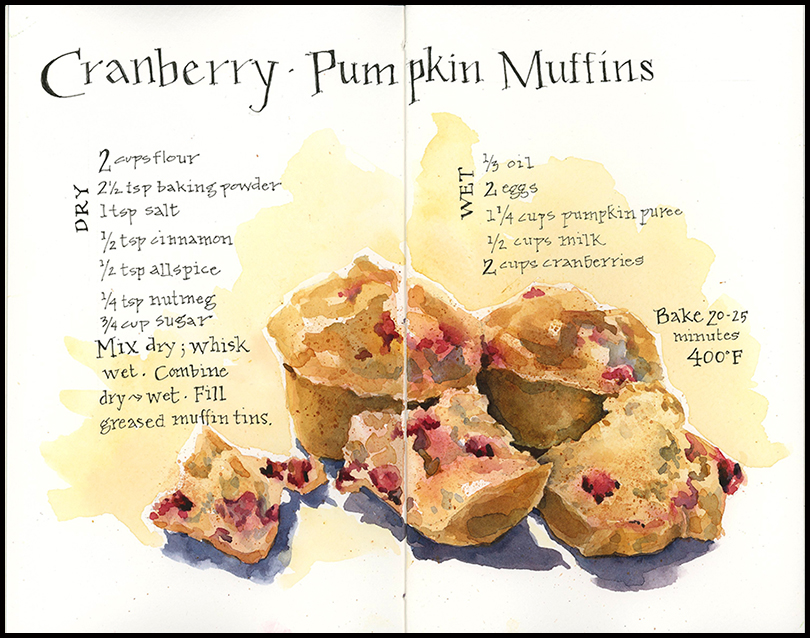 Cranberry · Pumpkin Muffins
DRY
2 cups flour
2½ tsp baking powder
1 tsp salt
½ tsp cinnamon
½ tsp allspice
¼ tsp nutmeg
¾ cup sugar
Mix dry; whisk
wet. Combine
dry → wet. Fill
greased muffin tins.
WET
⅓ oil
2 eggs
1¼ cups pumpkin puree
½ cups milk
2 cups cranberries
Bake 20-25
minutes
400°F